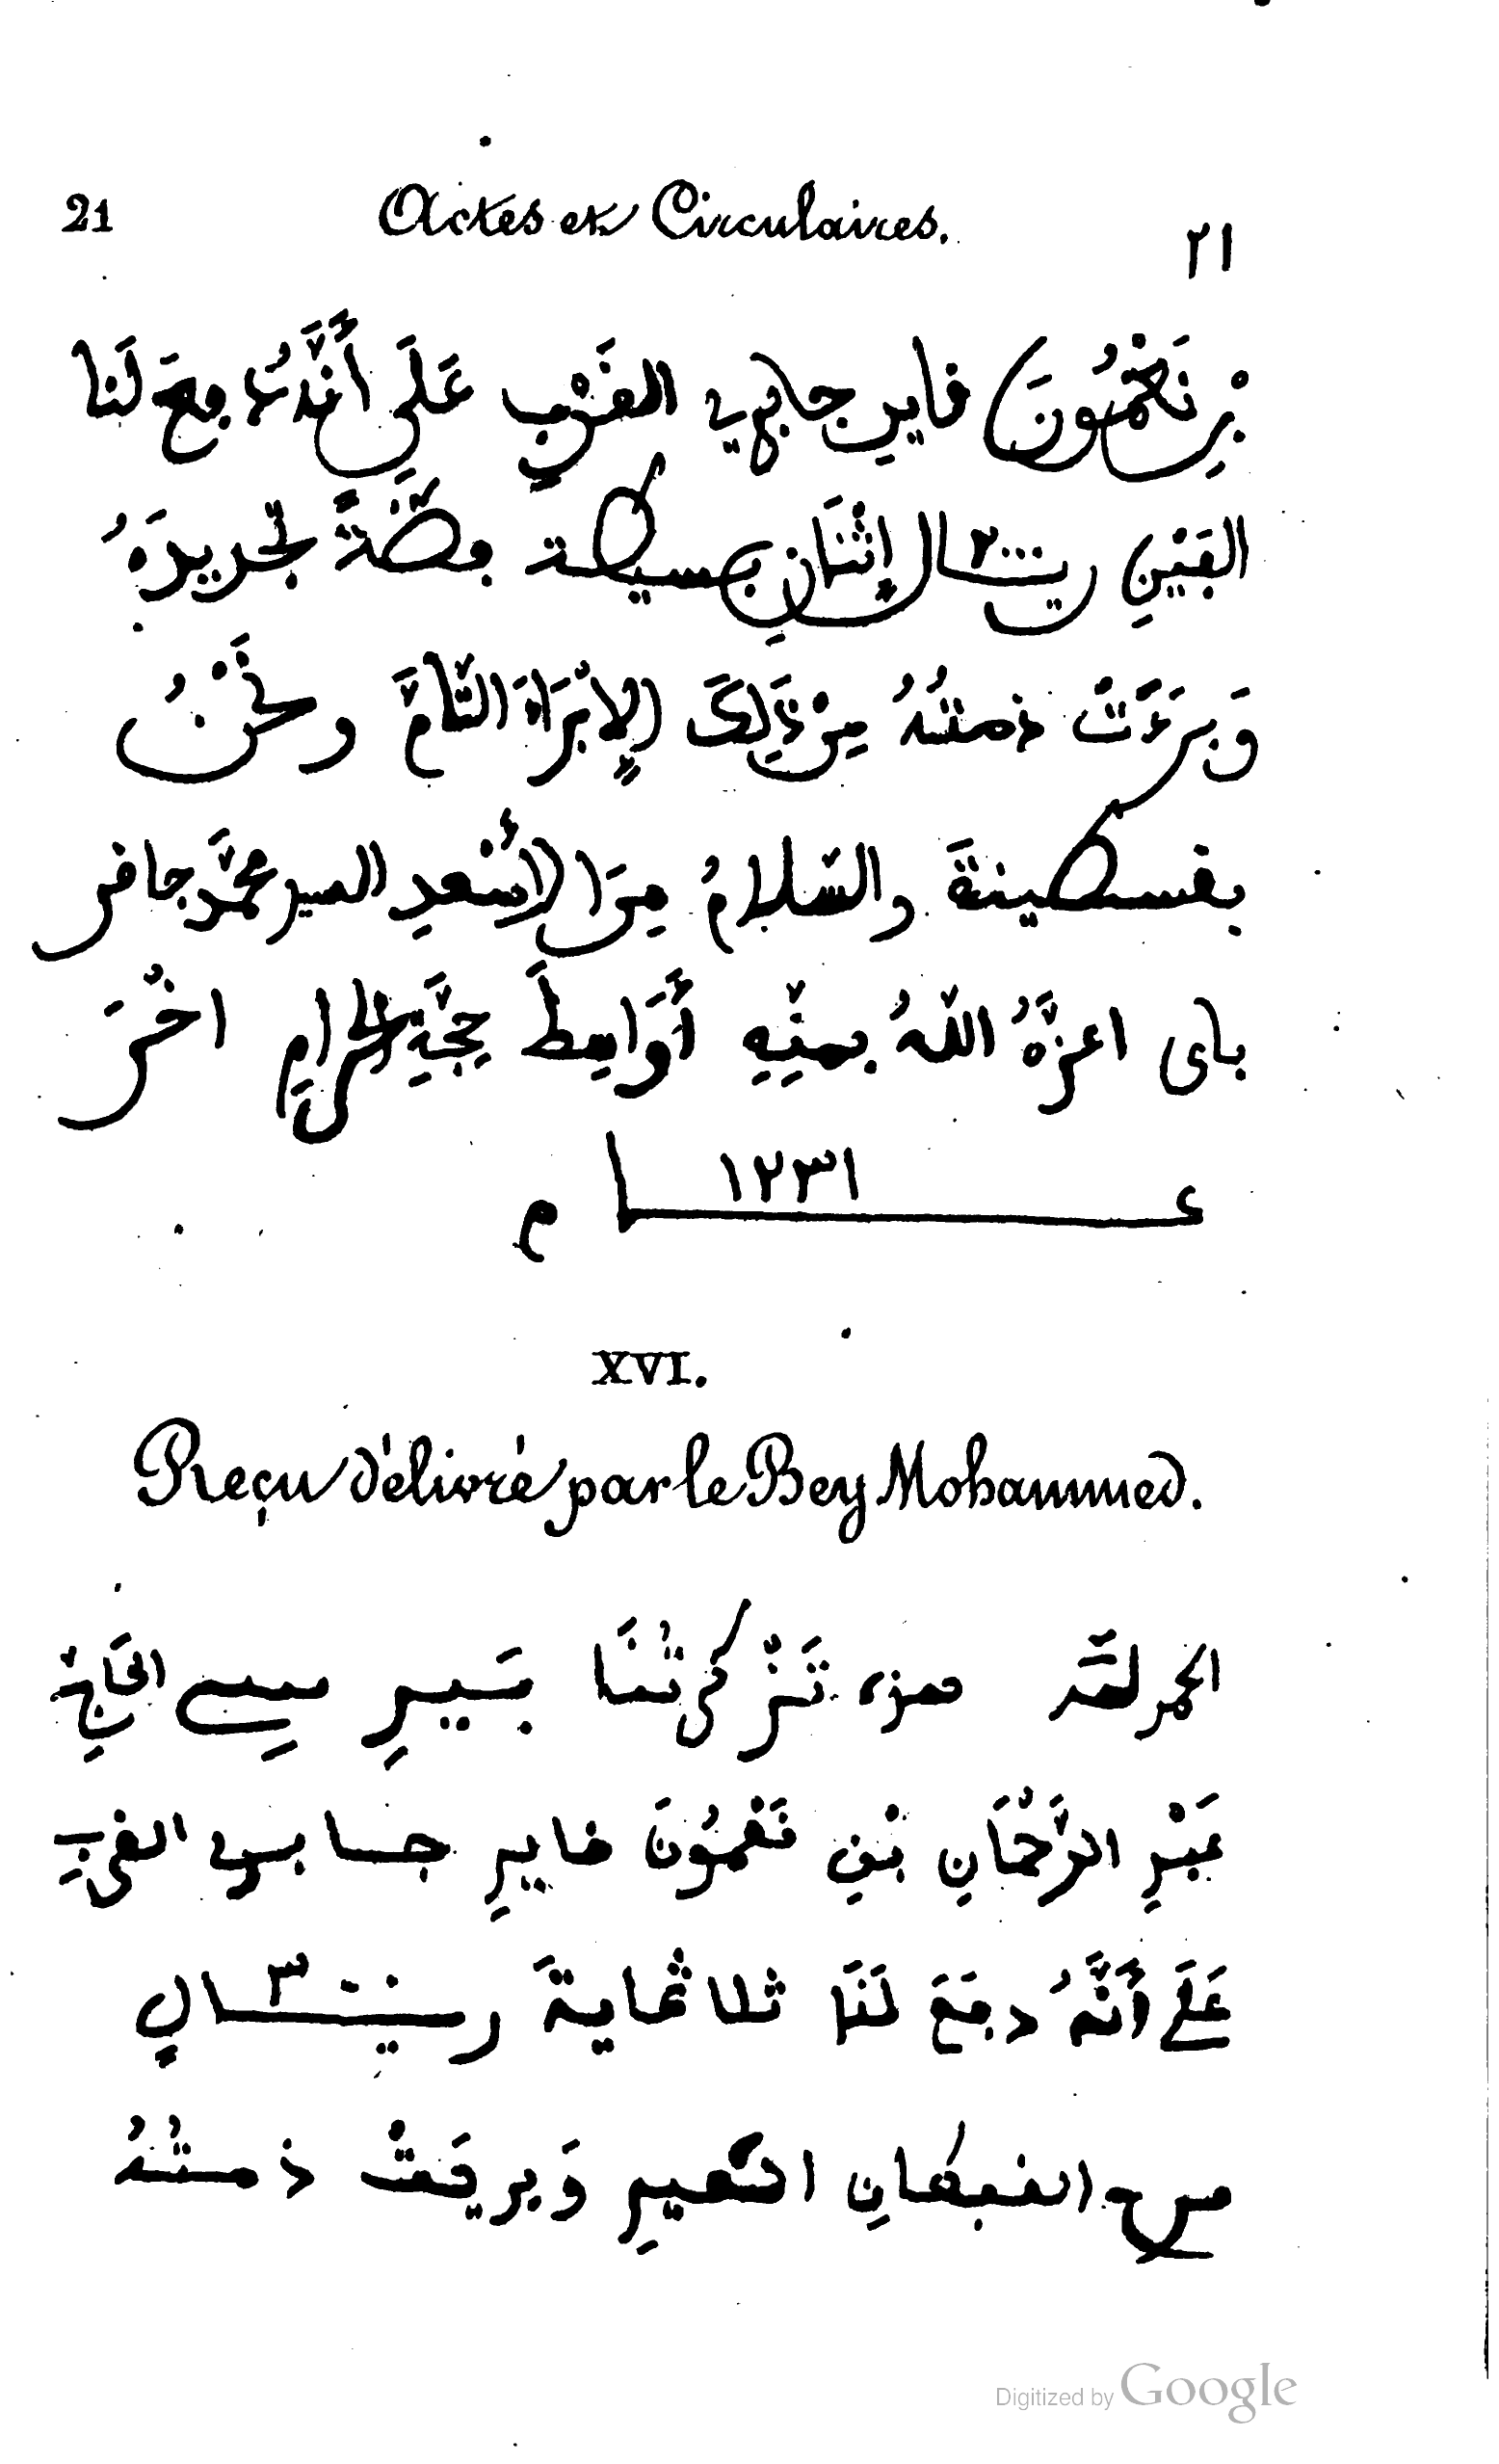 21 Actes et Circulaires. ٢١
بْنِ نَعْمُونَ فايد جابري الغَرْبِ عَلَى أَنَّهُ دفعَ لَنا
الفَيْنِ ريـ٢٠٠٠ـال إثْنَانِ بهسيكة فضَّةً لجريدَهُ
وَبَرَءَتْ ذمتُهُ مِنْ ذَلِكَ الإبْرَاءَ التَّامَّ ونَحْنُ
بقسطينةَ والسّلامُ مِنَ الأَسْعدِ السيد محمَّد جافر
باى اعزَّهُ اللّهُ بمنّهِ أَوَاسِطَ حِجَّةِ الحرامِ اخُرَ
عـ١٢٣١ـام
XVI.
Reçu délivré par le Bey Mohammed.
الحمد لله هذه تَذْكرتُنَا بَيدِ سِي الحَاجّ
عَبْدِ الرَّحْمَانِ بْنِ نَعْمُونَ فايدِ جـابرى الغربِ
عَلَى أَنَّهُ دفعَ لَنَا ثلاثمايةَ ريـ٣٠٠ـالٍ
من الغبطانِ الكبيرِ وَبريَتْ ذمتُهُ
Digitized by Google